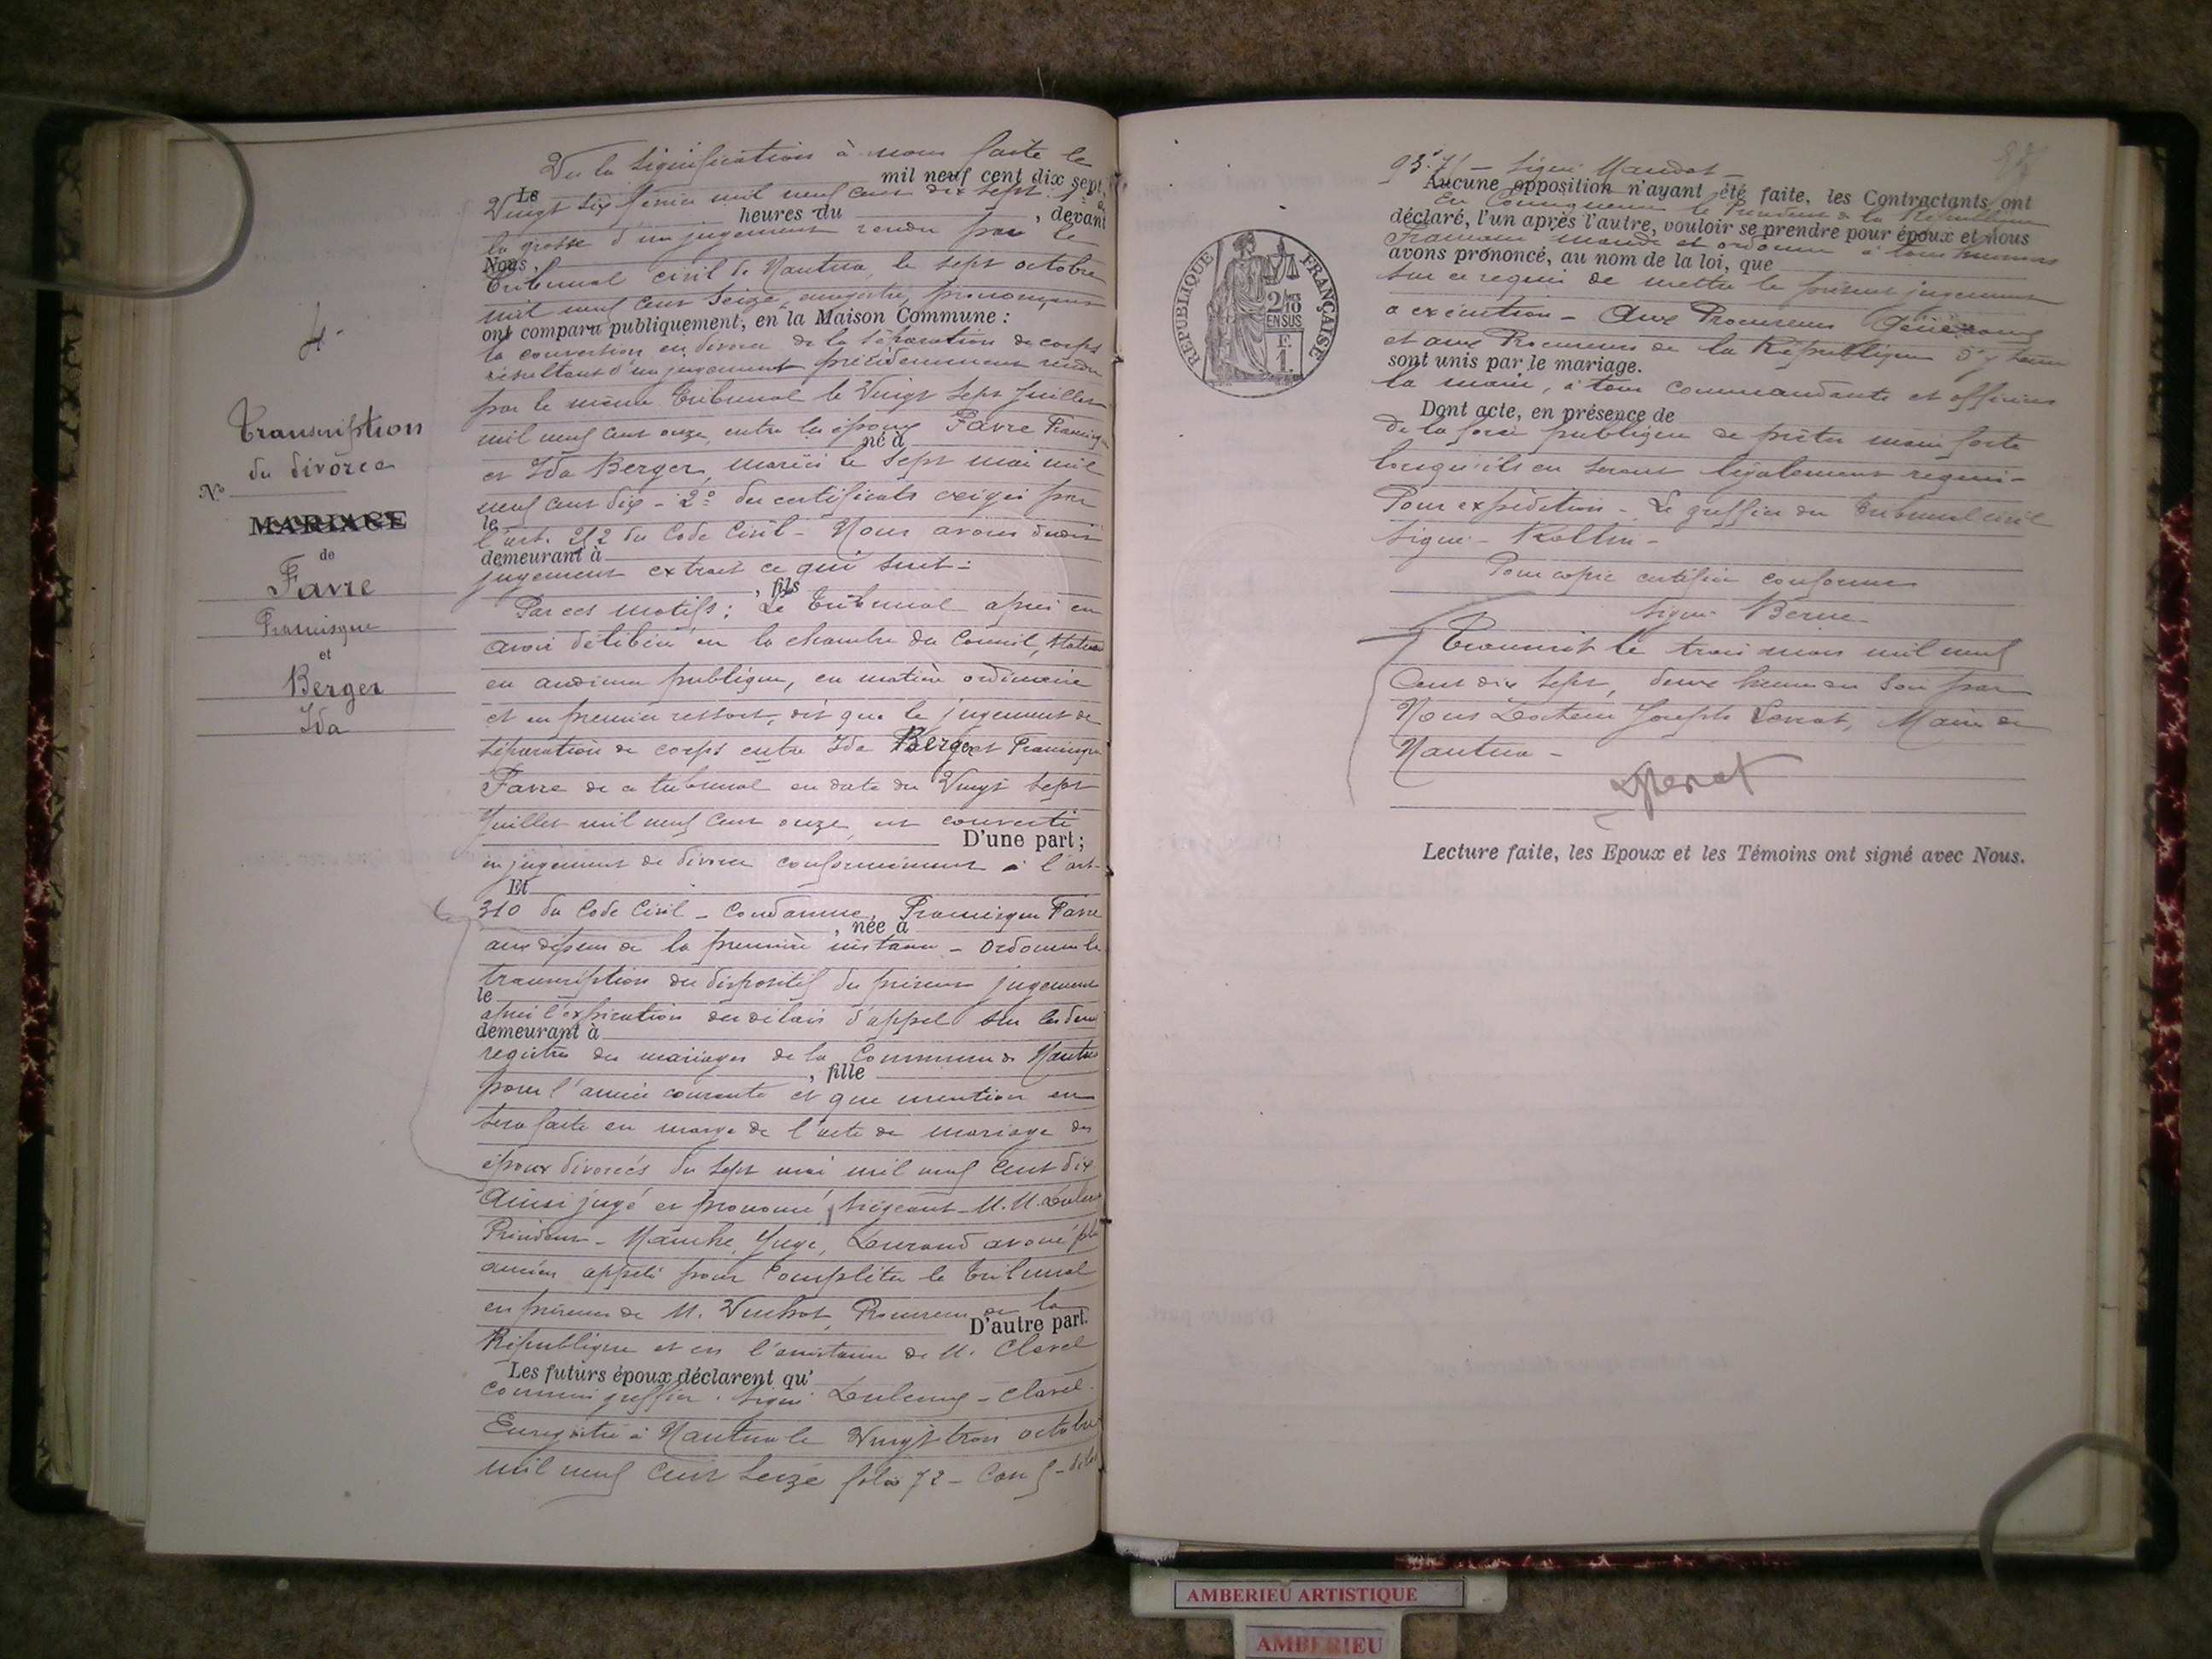 4.
Transcription
du divorce
N°
MARIAGE
de
Favre
Francisque
et
Berger
Ida
Vu la signification à nous faite le
Le mil neuf cent dix sept,
Vingt six février mil neuf cent dix sept 1° de
heures du , devant
la grosse d'un jugement rendu par le
Nous,
Tribunal civil de Nantua, le sept octobre
mil neuf cent seize, enregistré, prononçant
ont comparu publiquement, en la Maison Commune :
la conversion en divorce de la séparation de corps
résultant d'un jugement précédemment rendu
par le même Tribunal le Vingt sept Juillet
mil neuf cent onze, entre les époux Favre Francisque
né à
et Ida Berger, mariés le sept mai mil
neuf cent dix - 2° des certificats exigés par
le
l'art. 252 du Code Civil - Nous avons dudit
demeurant à
jugement extrait ce qui suit :
, fils
Par ces motifs : Le Tribunal après en
avoir délibéré en la chambre du Conseil, statuant
en audience publique, en matière ordinaire
et en premier ressort, dit que le jugement de
séparation de corps entre Ida Berger et Francisque
Favre de ce tribunal en date du Vingt sept
Juillet mil neuf cent onze, est converti
D'une part ;
en jugement de divorce conformément à l'art.
Et
310 du Code Civil - Condamne, Francisque Favre
, née à
aux dépens de la première instance - Ordonne la
transcription du dispositif du présent jugement
le
après l'expiration des délais d'appel sur les deux
demeurant à
registres des mariages de la Commune de Nantua
, fille
pour l'année courante et que mention en
sera faite en marge de l'acte de mariage des
époux divorcés du sept mai mil neuf cent dix
Ainsi jugé et prononcé, siégeant M.M.
Président - Juge, Durand avoué plus
ancien appelé pour compléter le Tribunal
en présence de M. Procureur de la
D'autre part.
République et en l'assistance de M. Clavel
Les futurs époux déclarent qu'
commis greffier. Signé - Clavel.
Enregistré à Nantua le Vingt trois octobre
mil neuf cent seize folio 72 - Case 5 -
93.75 - Signé Mandot
Aucune opposition n'ayant été faite, les Contractants ont
En conséquence le Président de la République
déclaré, l'un après l'autre, vouloir se prendre pour époux et nous
Française mande et ordonne à tous huissiers
avons prononcé, au nom de la loi, que
sur ce requis de mettre le présent jugement
à exécution - Aux Procureurs Généraux
et aux Procureurs de la République d'y tenir
sont unis par le mariage.
la main, à tous commandants et officiers
Dont acte, en présence de
de la force publique de prêter main forte
lorsqu'ils en seront légalement requis -
Pour expédition - Le greffier du Tribunal civil
Signé -
Pour copie certifiée conforme
Signé
Transcrit le trois mars mil neuf
Cent dix sept, deux heures du soir par
Nous Docteur Joseph , Maire de
Nantua -
Lecture faite, les Epoux et les Témoins ont signé avec Nous.
RÉPUBLIQUE FRANÇAISE
2/10
EN SUS
F.
1.
AMBERIEU ARTISTIQUE
AMBERIEU